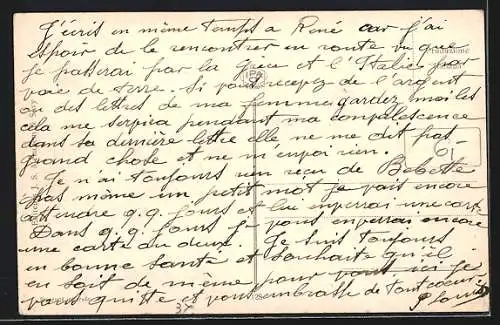 J'écris en même temps a René car j'ai
espoir de le rencontrer en route vu que
je passerai par la Grèce et l'Italie par
voie de terre. Si vous recevez de l'argent
ou des lettres de ma femme gardez moi les
cela me servira pendant ma convalescence
dans sa dernière lettre elle ne me dit pas
grand chose et ne m'envoi rien.
Je n'ai toujours rien reçu de Bebette
pas même un petit mot je vais encore
attendre q.q. jours et lui enverrai une carte
Dans q.q. jours je vous enverrai encore
une carte ou deux. Je suis toujours
en bonne santé et souhaite qu'il
en soit de même pour vous ici je
vous quitte et vous embrasse de tout coeur
Louis
6-
37